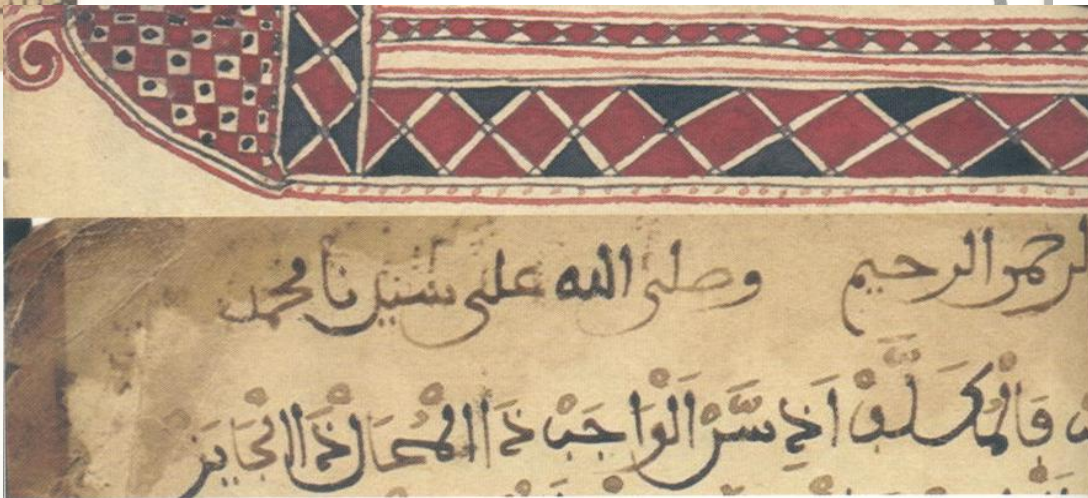 لرحمن الرحيم وصلى الله على سيدنا محمد
فَالْمُكَلَّفْ اَذِسَّنْ الْوَاجَبْ ذَا الْمُحَالْ ذَا الْجَايَزْ